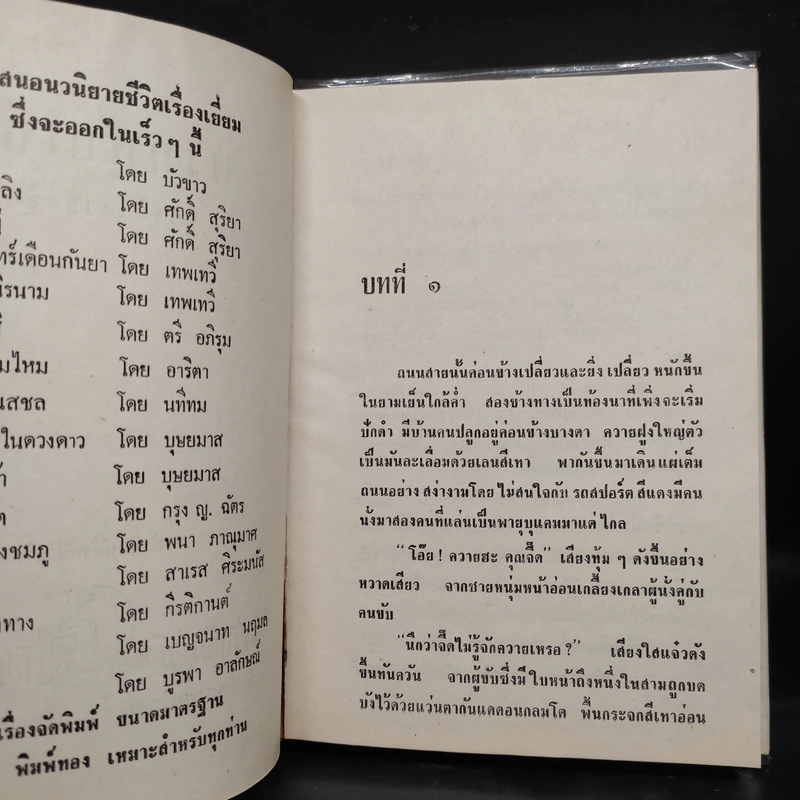 สนอนวนิยายชีวิตเรื่องเยี่ยม
ซึ่งจะออกในเร็วๆ นี้
โดย บัวขาว
ลิง โดย ศักดิ์ สุริยา
โดย ศักดิ์ สุริยา
ทร์เดือนกันยา โดย เทพเทวี
นิรนาม โดย เทพเทวี
โดย ตรี อภิรุม
มไหม โดย อาริตา
นสชล โดย นทีทม
ในดวงดาว โดย บุษยมาส
โดย บุษยมาส
โดย กรุง ญ. ฉัตร
งชมภู โดย พนา ภาณุมาศ
โดย สาเรส ศิระมนัส
ทาง โดย กีรติกานต์
โดย เบญจนาท นฤมล
โดย บูรพา อาลักษณ์
เรื่องจัดพิมพ์ ขนาดมาตรฐาน
พิมพ์ทอง เหมาะสำหรับทุกท่าน
บทที่ ๑
ถนนสายนั้นค่อนข้างเปลี่ยวและยิ่ง เปลี่ยว หนักขึ้น
ในยามเย็นใกล้ค่ำ สองข้างทางเป็นท้องนาที่เพิ่งจะเริ่ม
ปักดำ มีบ้านคนปลูกอยู่ค่อนข้างบางตา ควายฝูงใหญ่ตัว
เป็นมันละเลื่อมด้วยเลนสีเทา พากันขึ้นมาเดินแผ่เต็ม
ถนนอย่าง สง่างามโดย ไม่สนใจกับ รถสปอร์ต สีแดงมีคน
นั่งมาสองคนที่แล่นเป็นพายุบุแคมมาแต่ไกล
“โอ๊ย! ควายฮะ คุณจี๊ด” เสียงทุ้ม ๆ ดังขึ้นอย่าง
หวาดเสียว จากชายหนุ่มหน้าอ่อนเกลี้ยงเกลาผู้นั่งคู่กับ
คนขับ
“นึกว่าจี๊ดไม่รู้จักควายเหรอ?” เสียงใสแจ๋วดัง
ขึ้นทันควัน จากผู้ขับซึ่งมี ใบหน้าถึงหนึ่งในสามถูกบด
บังไว้ด้วยแว่นตากันแดดอนกลมโต พื้นกระจกสีเทาอ่อน